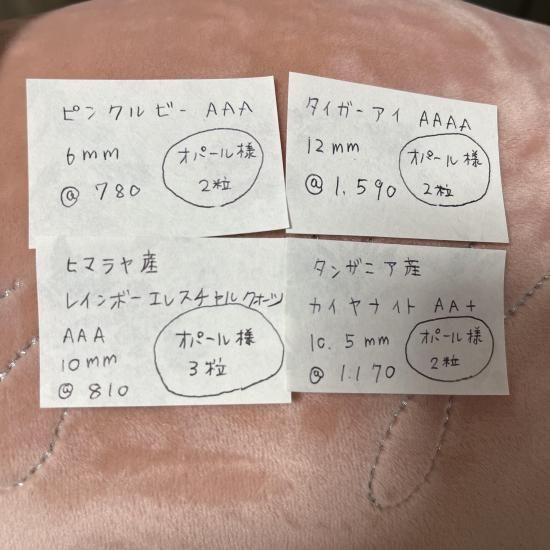 ピンクルビー AAA
6mm
@ 780
オパール様
2粒
タイガーアイ AAAA
12mm
@ 1.590
オパール様
2粒
ヒマラヤ産
レインボーエレスチャルクォーツ
AAA
10mm
@ 810
オパール様
3粒
タンザニア産
カイヤナイト AA+
10.5mm
@ 1.170
オパール様
2粒